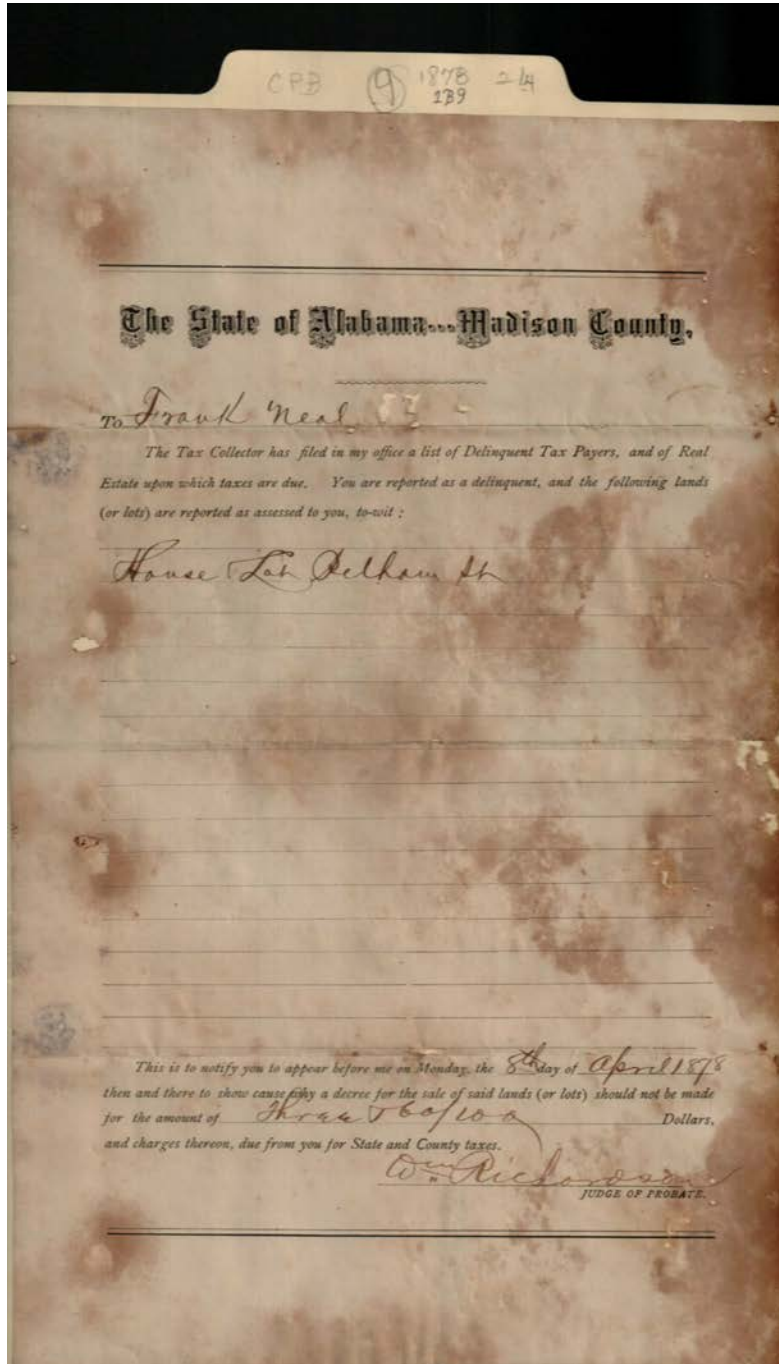 CPB (9) 1878 24
1B9
The State of Alabama---Madison County,
To Frank Neal
The Tax Collector has filed in my office a list of Delinquent Tax Payers, and of Real
Estate upon which taxes are due. You are reported as a delinquent, and the following lands
(or lots) are reported as assessed to you, to-wit:
House Lot Pelham St
This is to notify you to appear before me on Monday, the 8th day of April 1878
then and there to show cause why a decree for the sale of said lands (or lots) should not be made
for the amount of Three & 60/100 Dollars,
and charges thereon, due from you for State and County taxes.
Wm Richardson
JUDGE OF PROBATE.